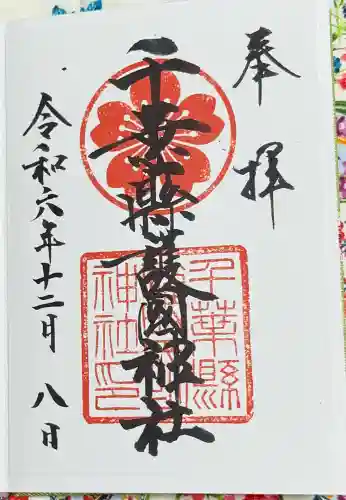 奉拜
千葉縣護國神社
千葉縣
神社印
令和六年十二月八日